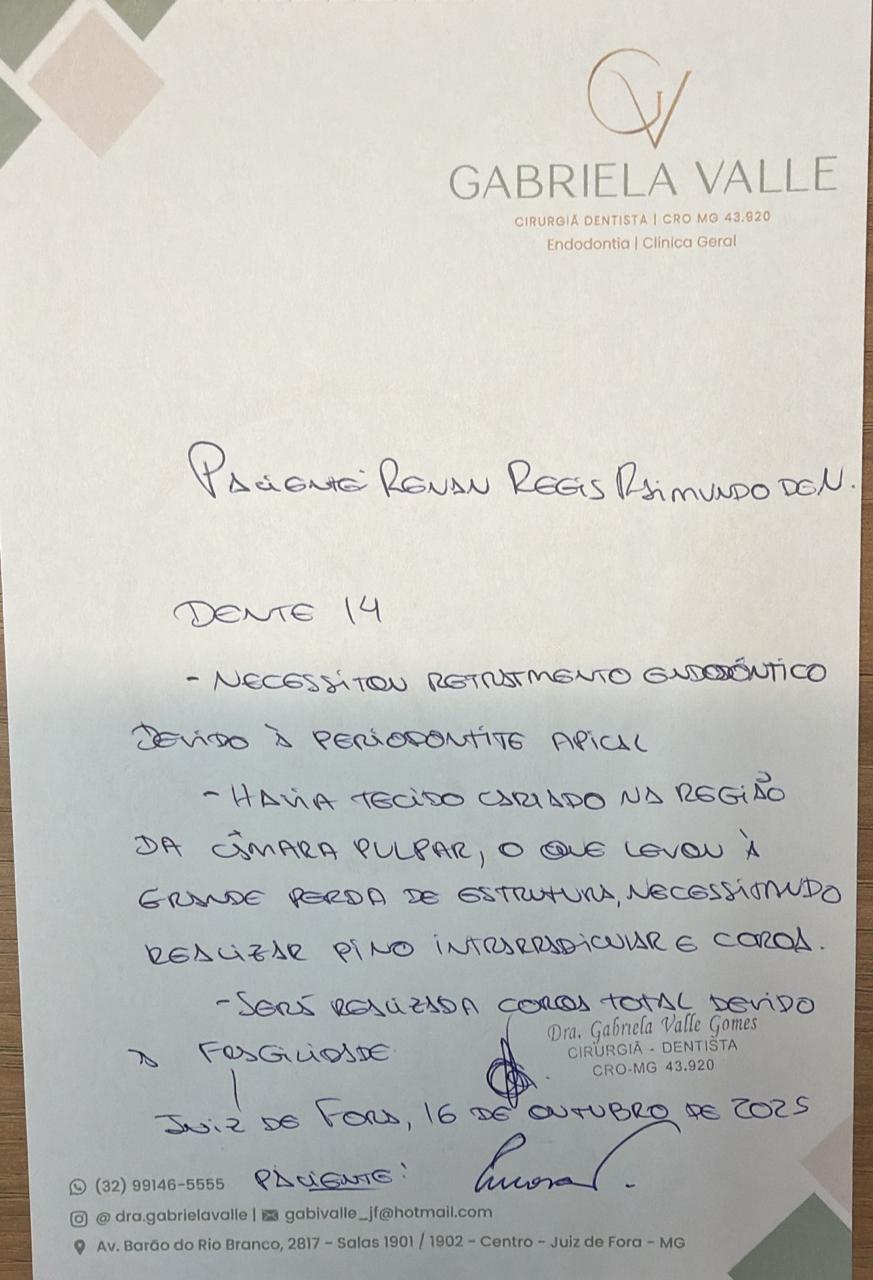 GABRIELA VALLE
CIRURGIÃ DENTISTA | CRO MG 43.920
Endodontia | Clínica Geral
PACIENTE RENAN REGIS RAIMUNDO DE N.
DENTE 14
- NECESSITOU RETRATMENTO ENDODÔNTICO
DEVIDO À PERIODONTITE APICAL
- HAVIA TECIDO CARIADO NA REGIÃO
DA CÂMARA PULPAR, O QUE LEVOU À
GRANDE PERDA DE ESTRUTURA, NECESSITANDO
REALIZAR PINO INTRARRADICULAR E COROA.
- SERÁ REALIZADA COROA TOTAL DEVIDO
À FRAGILIDADE
Dra. Gabriela Valle Gomes
CIRURGIÃ - DENTISTA
CRO-MG 43.920
JUIZ DE FORA, 16 DE OUTUBRO DE 2025
PACIENTE:
(32) 99146-5555
@ dra.gabrielavalle | gabivalle_jf@hotmail.com
Av. Barão do Rio Branco, 2817 - Salas 1901 / 1902 - Centro - Juiz de Fora - MG